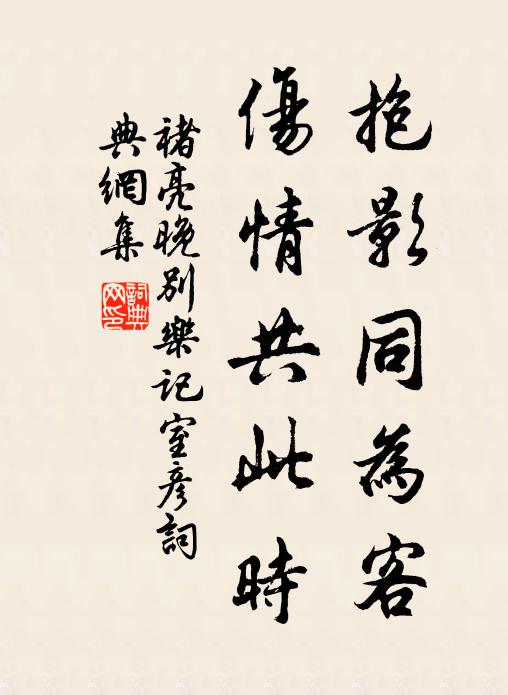 抱影同為客
傷情共此時
褚亮晚別樂記室彥詞
典網集
詞典網印